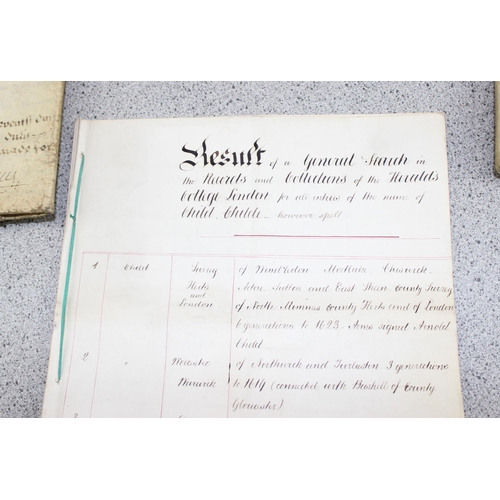 Result of a General Search in
the Records and Collections of the Heralds
College London for all entries of the name of
Child, Childe however spelt
1 Child Surrey of Wimbledon Mortlake Chiswick
Herts Acton Sutton and East Shean County Surrey
and of North Mimms County Herts and of London
London 6 generations to 1623. Arms signed Arnold
Child
2 " Worcester of Northwick and
Warwick to 1619 (connected with County
Gloucester)